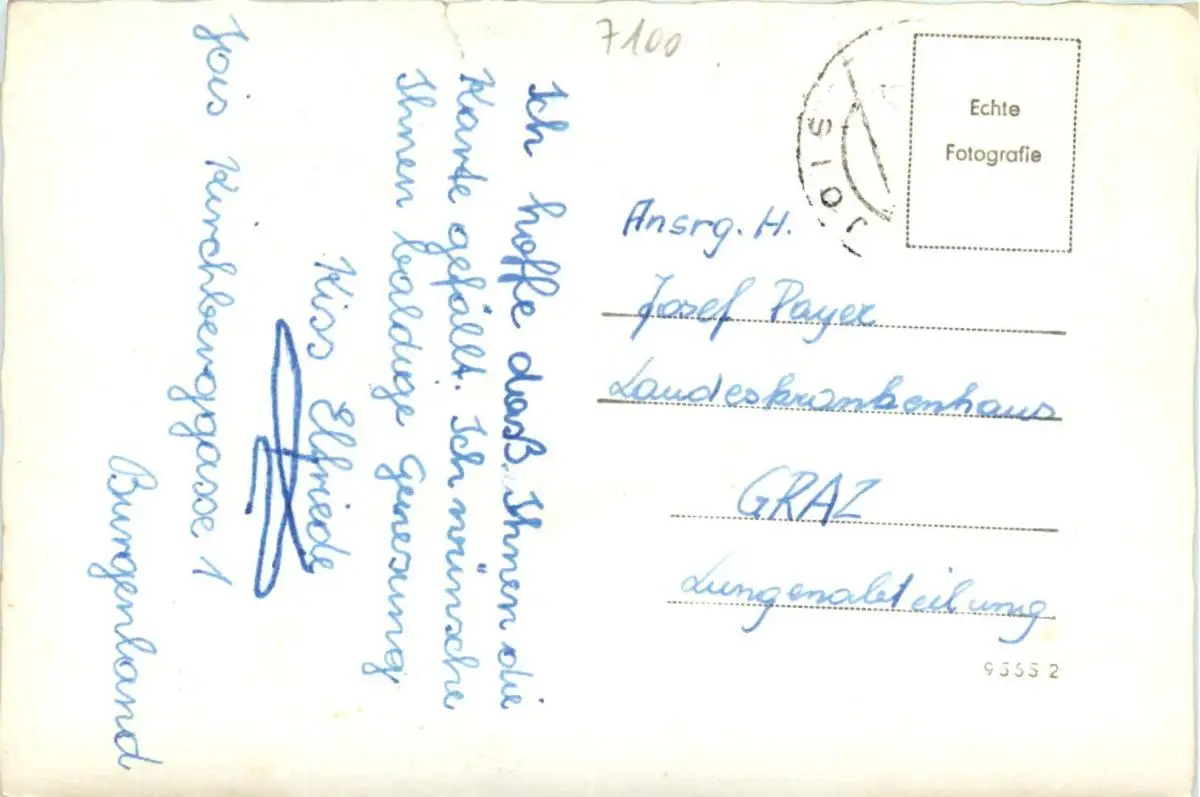 7100
Ich hoffe daß Ihnen die
Karte gefällt. Ich wünsche
Ihnen baldige Genesung
Kiss Elfriede
Jois Kirchberggasse 1
Burgenland
JOIS
Echte
Fotografie
Ansrg. H.
Josef Payer
Landeskrankenhaus
GRAZ
Lungenabteilung
95552